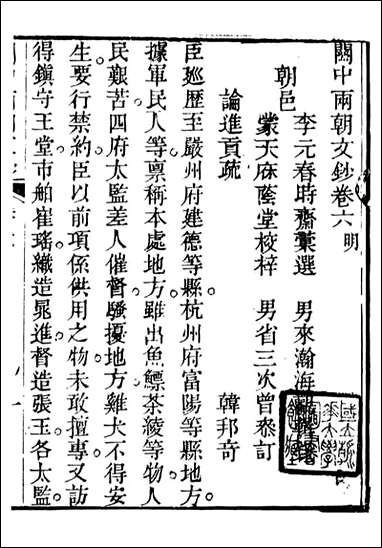 關中兩朝文鈔卷六 明
朝邑 李元春時齋彙選 男來瀚海
蒙天庥蔭堂校梓 男省三次曾叅訂
論進貢疏 韓邦奇
臣廵歷至嚴州府建德等縣杭州府富陽等縣地方
據軍民人等禀稱本處地方雖出魚鰾茶綾等物人
民艱苦四府太監差人催督騷擾地方雞犬不得安
生要行禁約臣以前項係供用之物未敢擅專又訪
得鎮守王堂市舶崔瑤織造晁進督造張玉各太監